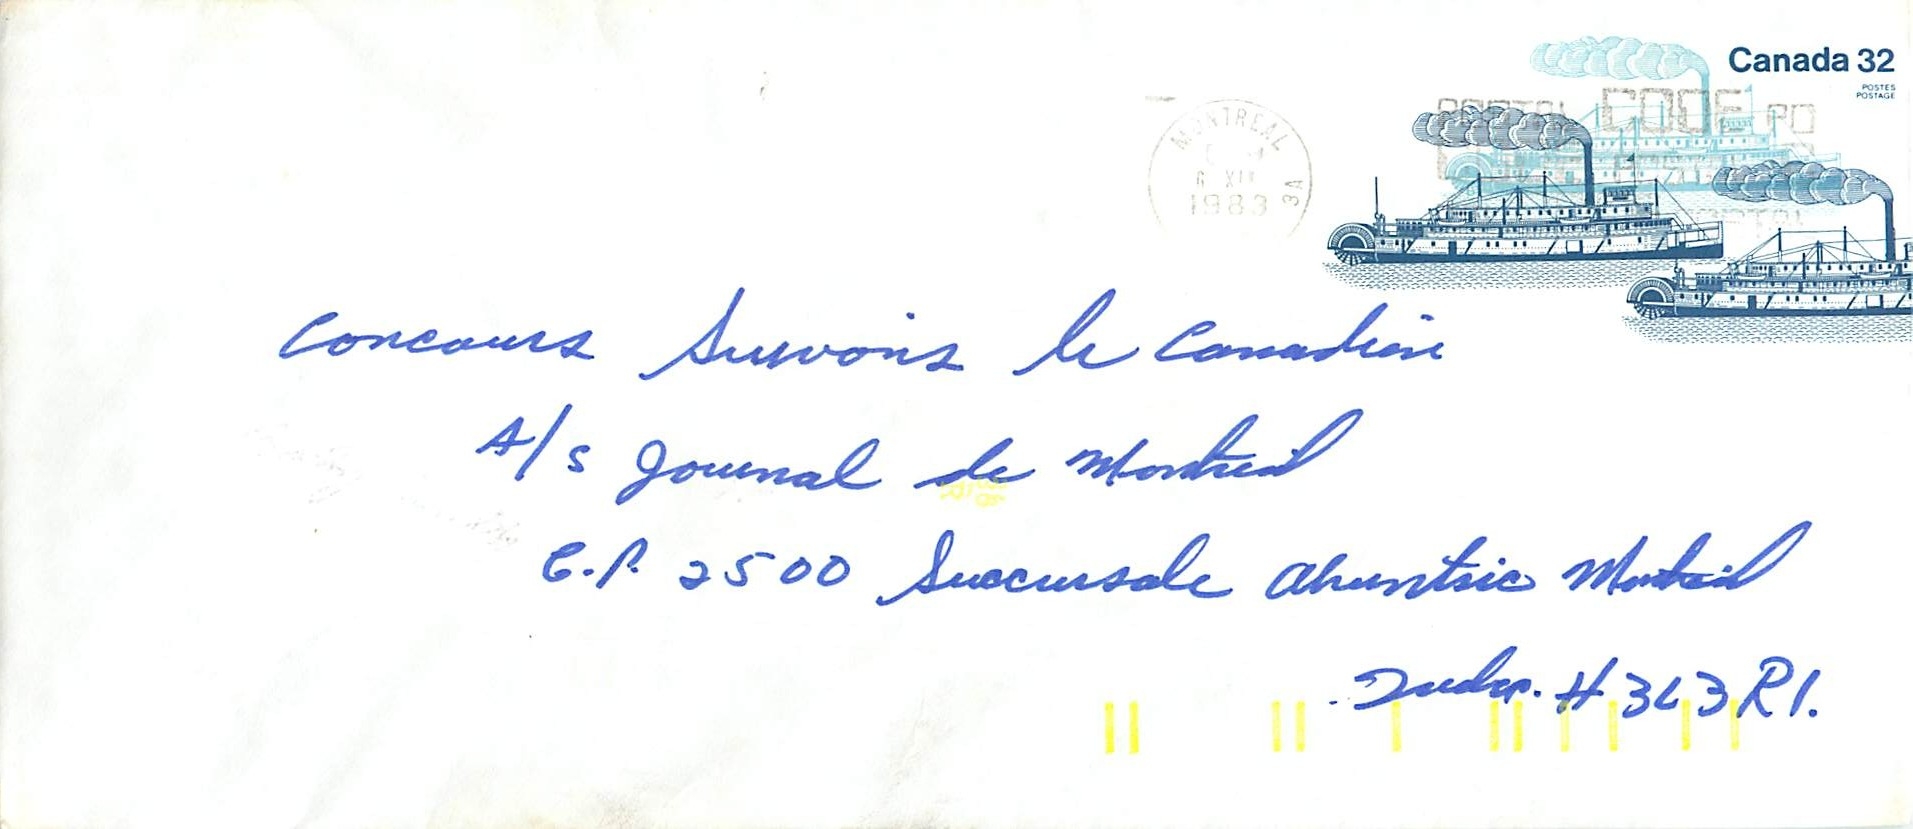 Canada 32
POSTES
POSTAGE
POSTAL CODE
MONTREAL
3A
6 XII
1983
Concours Suivons le Canadien
A/S Journal de Montréal
C.P. 2500 Succursale Ahuntsic Montréal
H3L3R1.